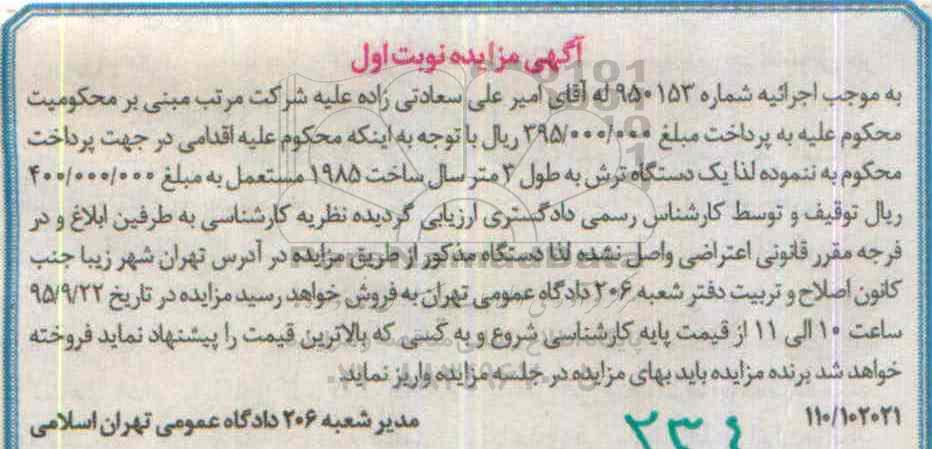 آگهی مزایده نوبت اول
به موجب اجرائیه شماره ۹۵۰۱۵۳ له آقای امیر علی سعادتی زاده علیه شرکت مرتب مبنی بر محکومیت
محکوم علیه به پرداخت مبلغ ۳۹۵/۰۰۰/۰۰۰ ریال با توجه به اینکه محکوم علیه اقدامی در جهت پرداخت
محکوم به ننموده لذا یک دستگاه ترش به طول ۳ متر سال ساخت ۱۹۸۵ مستعمل به مبلغ ۴۰۰/۰۰۰/۰۰۰
ریال توقیف و توسط کارشناس رسمی دادگستری ارزیابی گردیده نظریه کارشناسی به طرفین ابلاغ و در
فرجه مقرر قانونی اعتراضی واصل نشده لذا دستگاه مذکور از طریق مزایده در آدرس تهران شهر زیبا جنب
کانون اصلاح و تربیت دفتر شعبه ۲۰۶ دادگاه عمومی تهران به فروش خواهد رسید مزایده در تاریخ ۹۵/۹/۲۲
ساعت ۱۰ الی ۱۱ از قیمت پایه کارشناسی شروع و به کسی که بالاترین قیمت را پیشنهاد نماید فروخته
خواهد شد برنده مزایده باید بهای مزایده در جلسه مزایده واریز نماید.
۱۱۰/۱۰۲۰۲۱
مدیر شعبه ۲۰۶ دادگاه عمومی تهران اسلامی